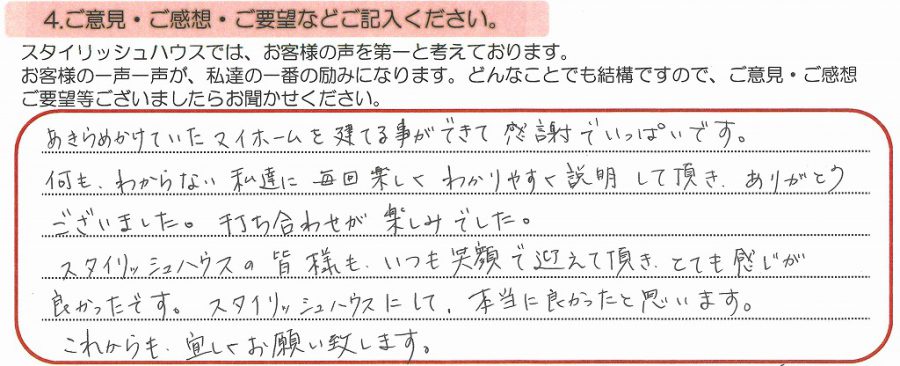 4.ご意見・ご感想・ご要望などご記入ください。
スタイリッシュハウスでは、お客様の声を第一と考えております。
お客様の一声一声が、私達の一番の励みになります。どんなことでも結構ですので、ご意見・ご感想
ご要望等ございましたらお聞かせください。
あきらめかけていたマイホームを建てる事ができて感謝でいっぱいです。
何も、わからない私達に毎回楽しくわかりやすく説明して頂き、ありがとう
ございました。打ち合わせが楽しみでした。
スタイリッシュハウスの皆様も、いつも笑顔で迎えて頂き、とても感じが
良かったです。スタイリッシュハウスにして、本当に良かったと思います。
これからも、宜しくお願い致します。